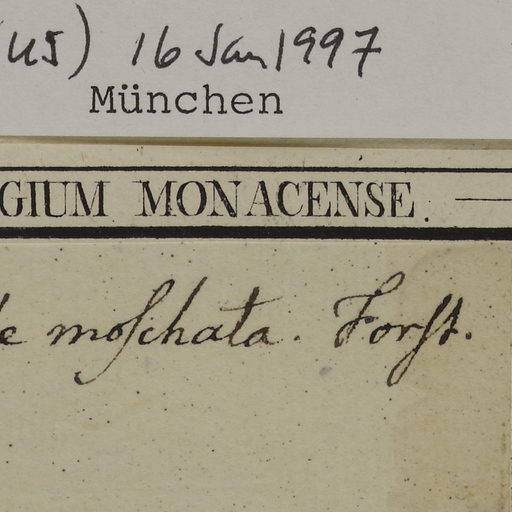 (US) 16 Jan 1997
München
GIUM MONACENSE.
le moſchata. Forſt.